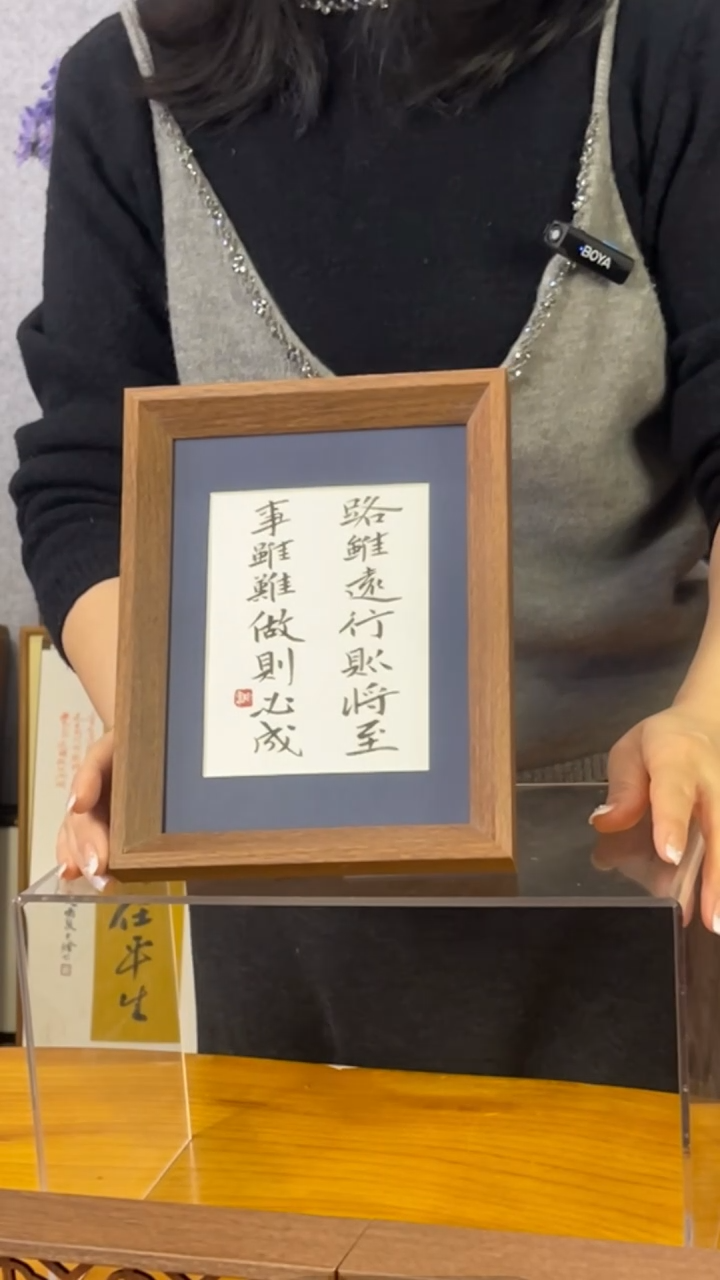 路雖遠行則將至
事雖難做則必成
BOYA
任平生